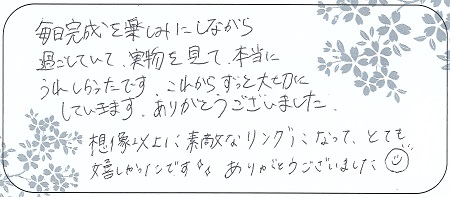 毎日完成を楽しみにしながら
過ごしていて、実物を見て、本当に
うれしかったです。これから、ずっと大切に
していきます。ありがとうございました。
想像以上に素敵なリングになって、とても
嬉しかったです。ありがとうございました